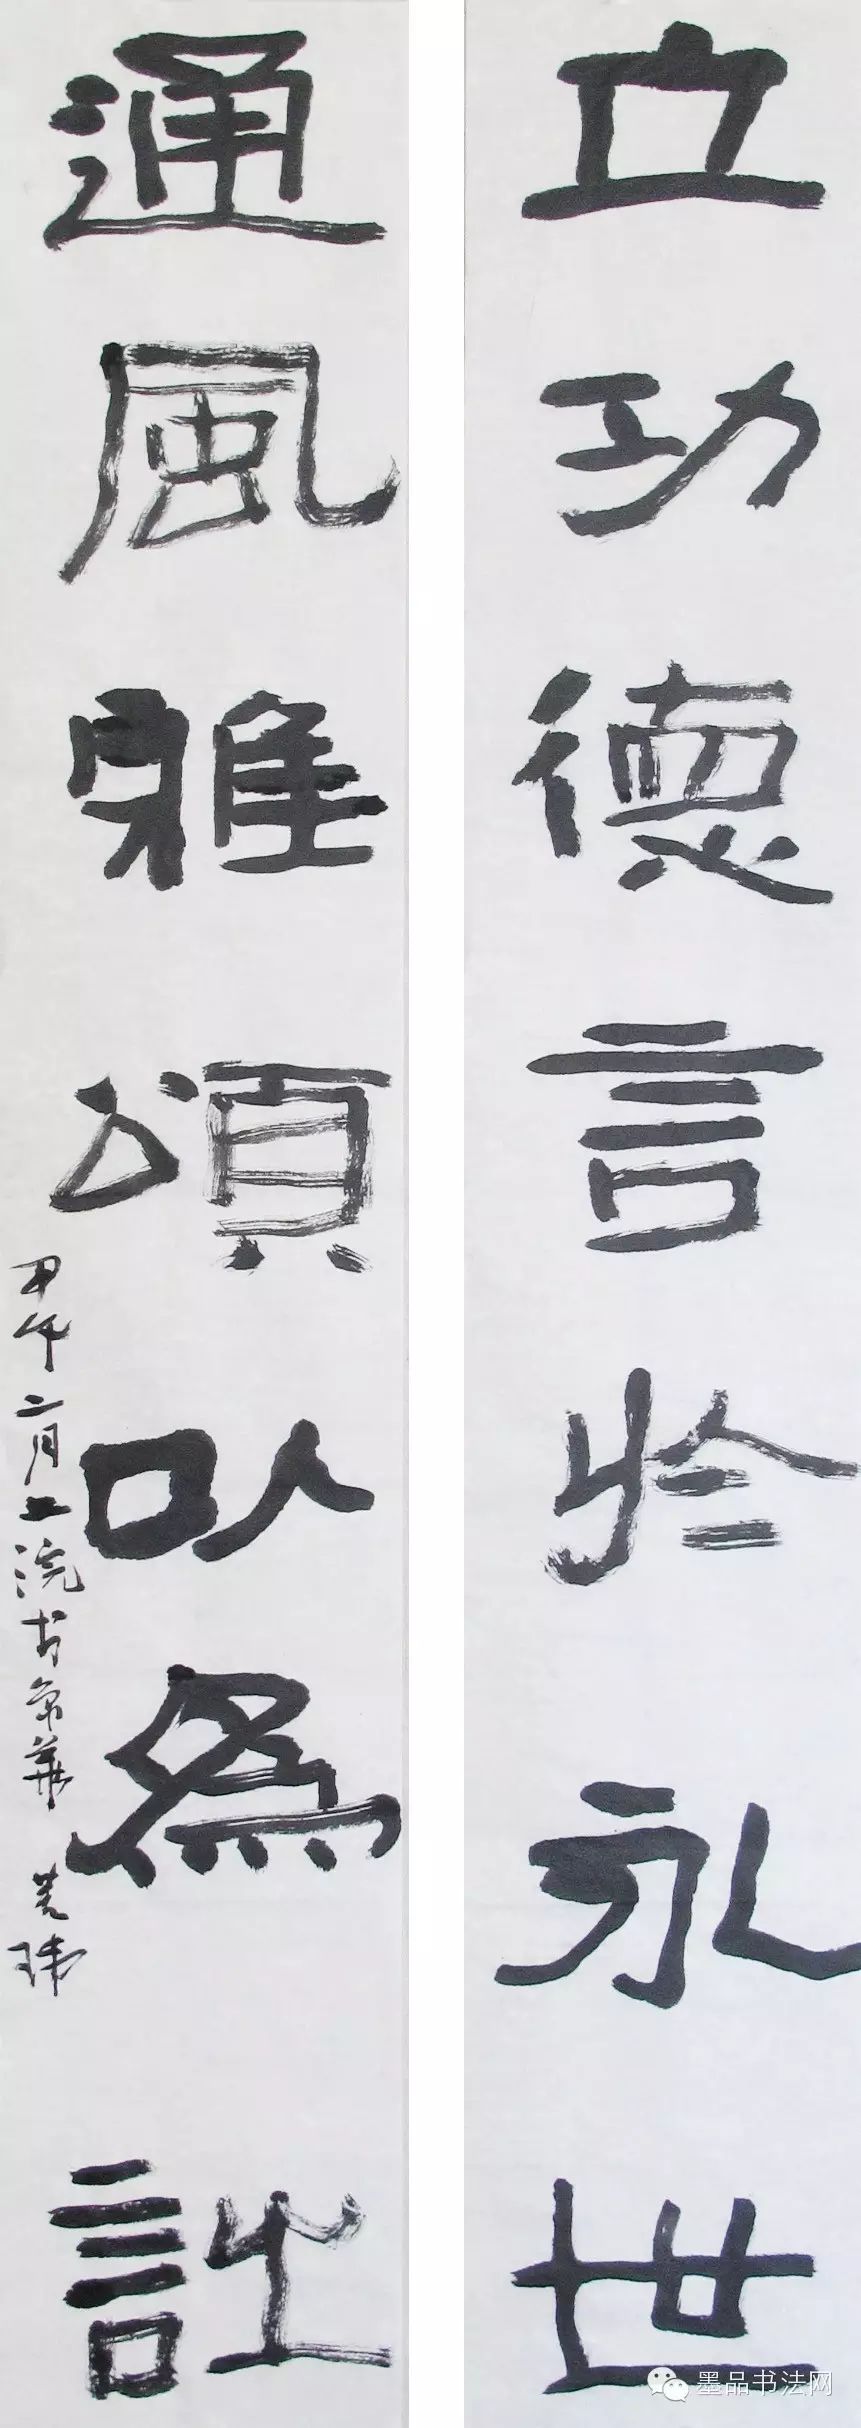 立功德言於永世
通風雅頌以爲詩
甲午二月上浣於京華
墨品书法网